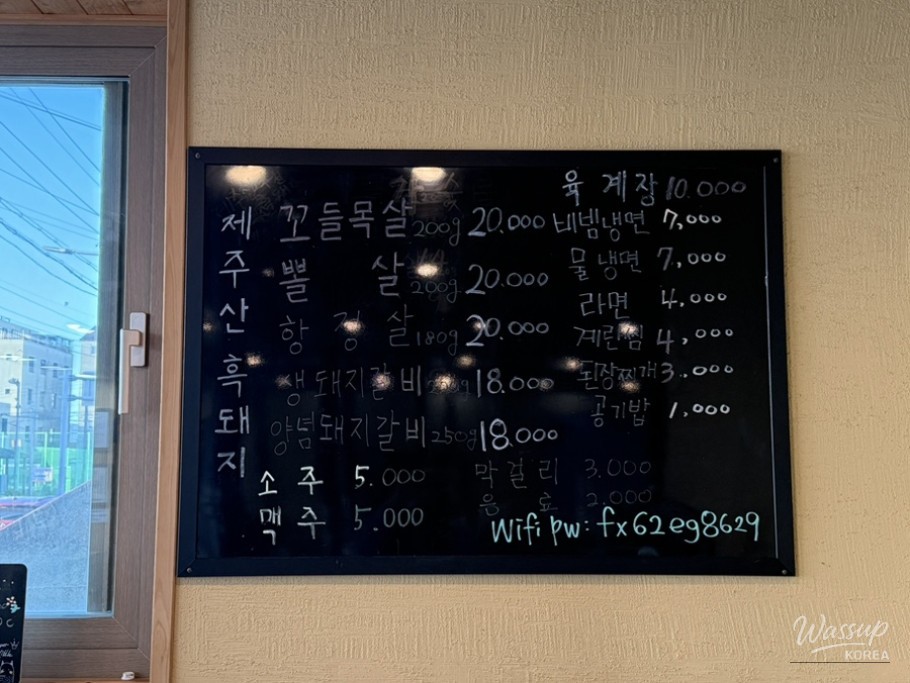 제주산흑돼지
꼬들목살 200g 20.000
뽈살 200g 20.000
항정살 180g 20.000
생돼지갈비 18.000
양념돼지갈비 250g 18.000
소주 5.000
맥주 5.000
육계장 10.000
비빔냉면 7,000
물냉면 7,000
라면 4,000
계란찜 4,000
된장찌개 3,000
공기밥 1,000
막걸리 3.000
음료 2.000
Wifi pw: fx62eg8629
Wassup
KOREA